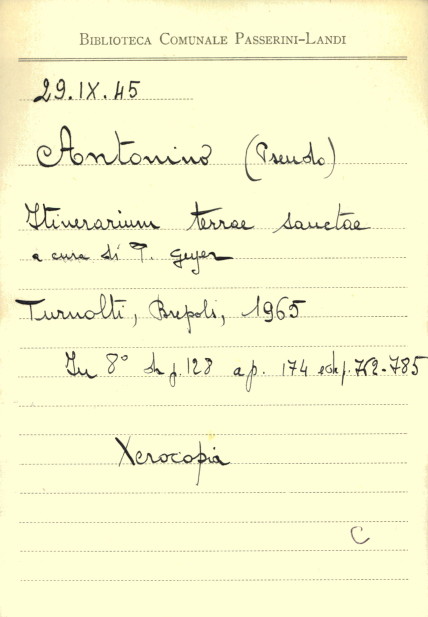 BIBLIOTECA COMUNALE PASSERINI-LANDI
29.IX.45
Antonino (Pseudo)
Itinerarium terrae sanctae
a cura di P. Geyer
Turnolti, Brepols, 1965
In 8° da p. 128 a p. 174 e da p. 762-785
Xerocopia
C